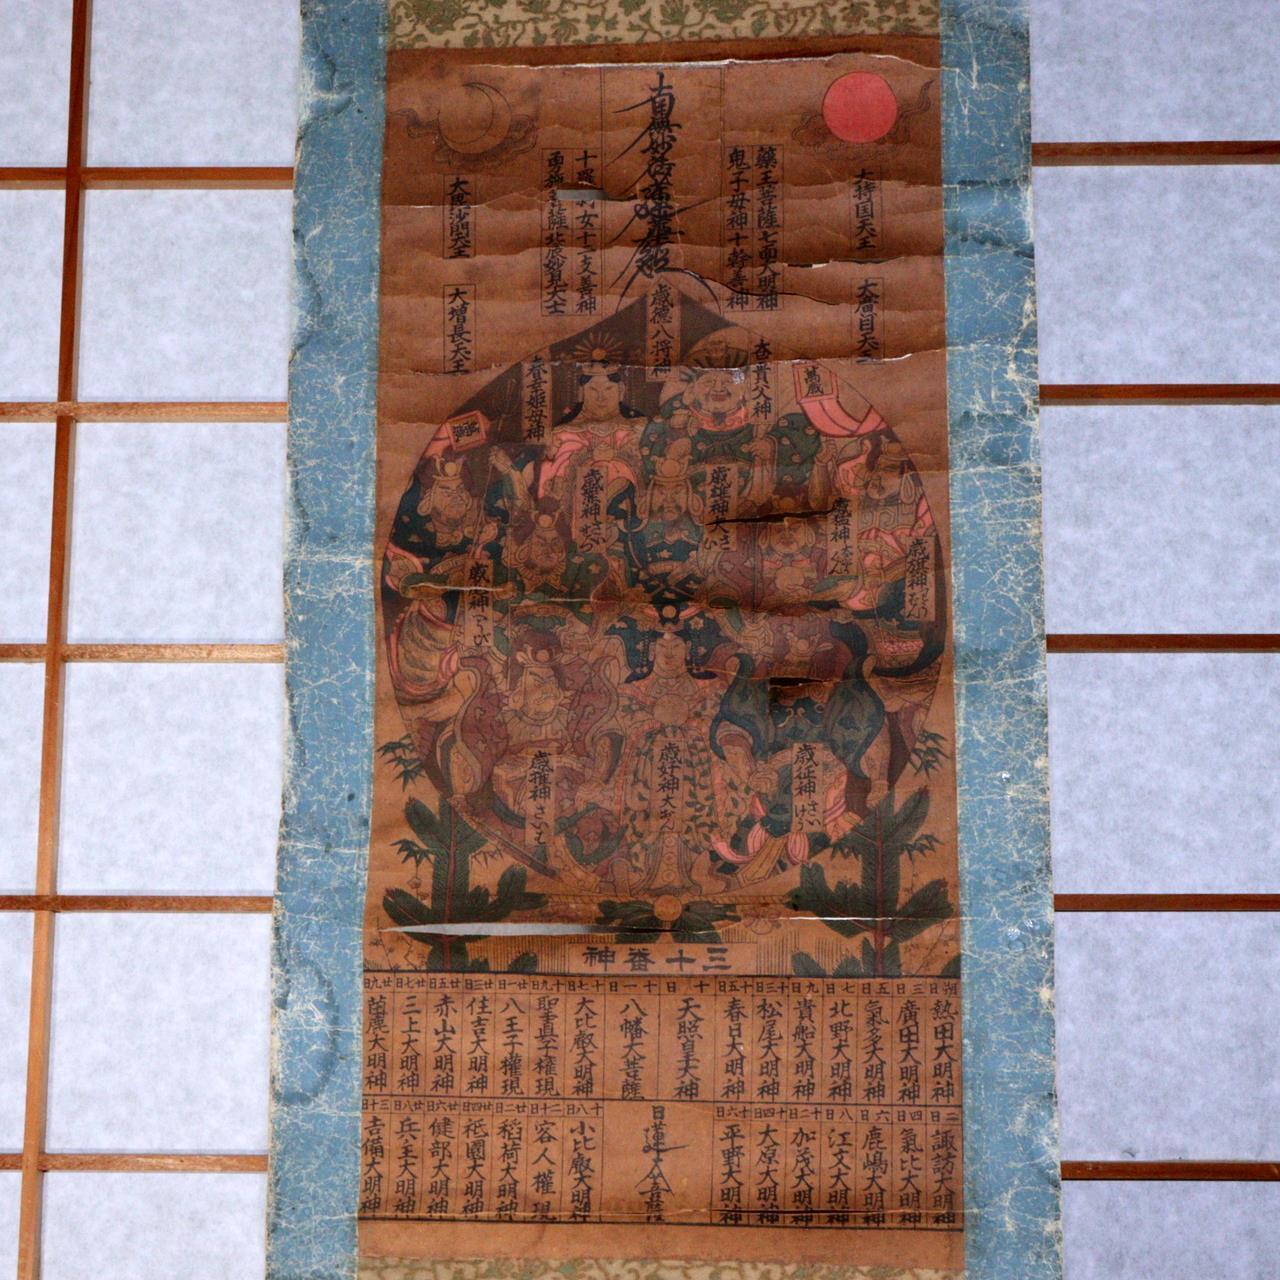 南無妙法蓮華経
大持国天王
大廣目天王
藥王菩薩七面大明神
鬼子母神十幹善神
女十二支善神
大毘沙門天王
大増長天王
歳徳八将神
萬歳
歳雄神大さい
歳熊神さいせつ
歳穫神さいは
歳好神大おん
歳征神さいけう
三十番神
朔日
熱田大明神
三日
廣田大明神
五日
氣多大明神
七日
北野大明神
九日
貴船大明神
十三日
松尾大明神
十五日
春日大明神
十日
天照皇大神
十一日
八幡大菩薩
十七日
大比叡大明神
十九日
聖真子權現
廿一日
八王子權現
廿三日
住吉大明神
廿五日
赤山大明神
廿七日
三上大明神
廿九日
苗鹿大明神
二日
諏訪大明神
四日
氣比大明神
六日
鹿嶋大明神
八日
江文大明神
十二日
加茂大明神
十四日
大原大明神
十六日
平野大明神
日蓮大菩薩
十八日
小比叡大明神
二十日
客人權現
廿二日
稻荷大明神
廿四日
祗園大明神
廿六日
健部大明神
廿八日
兵主大明神
三十日
吉備大明神